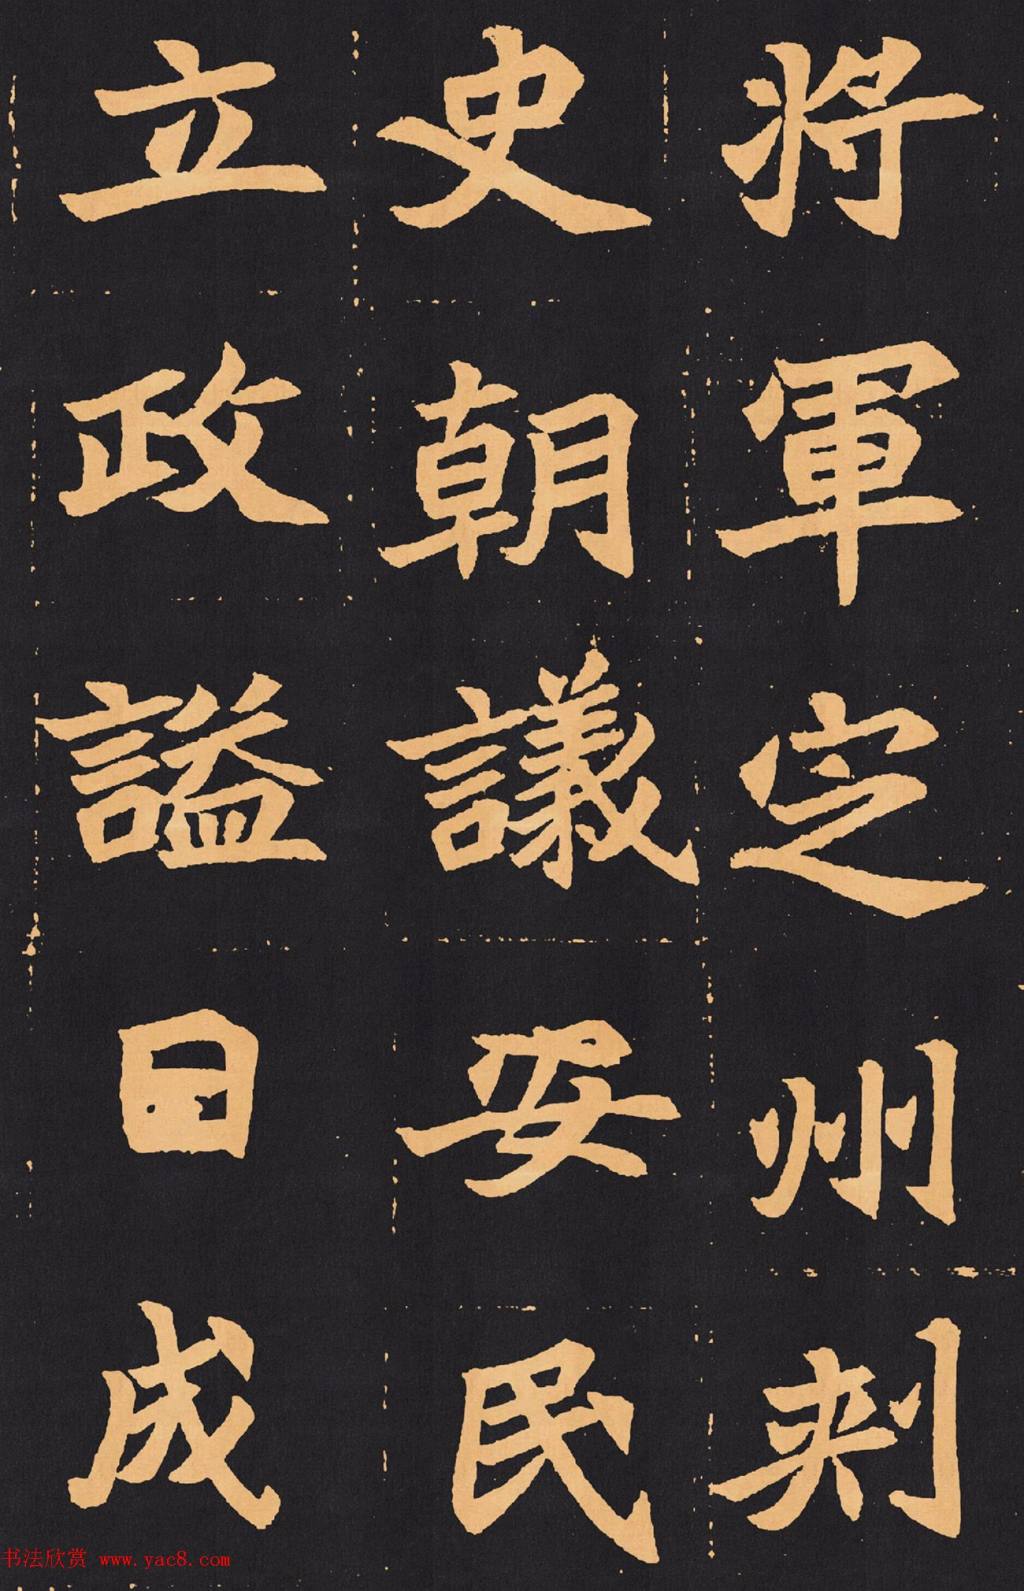 將軍定州刾
史朝議安民
立政謚曰成
书法欣赏 www.yac8.com